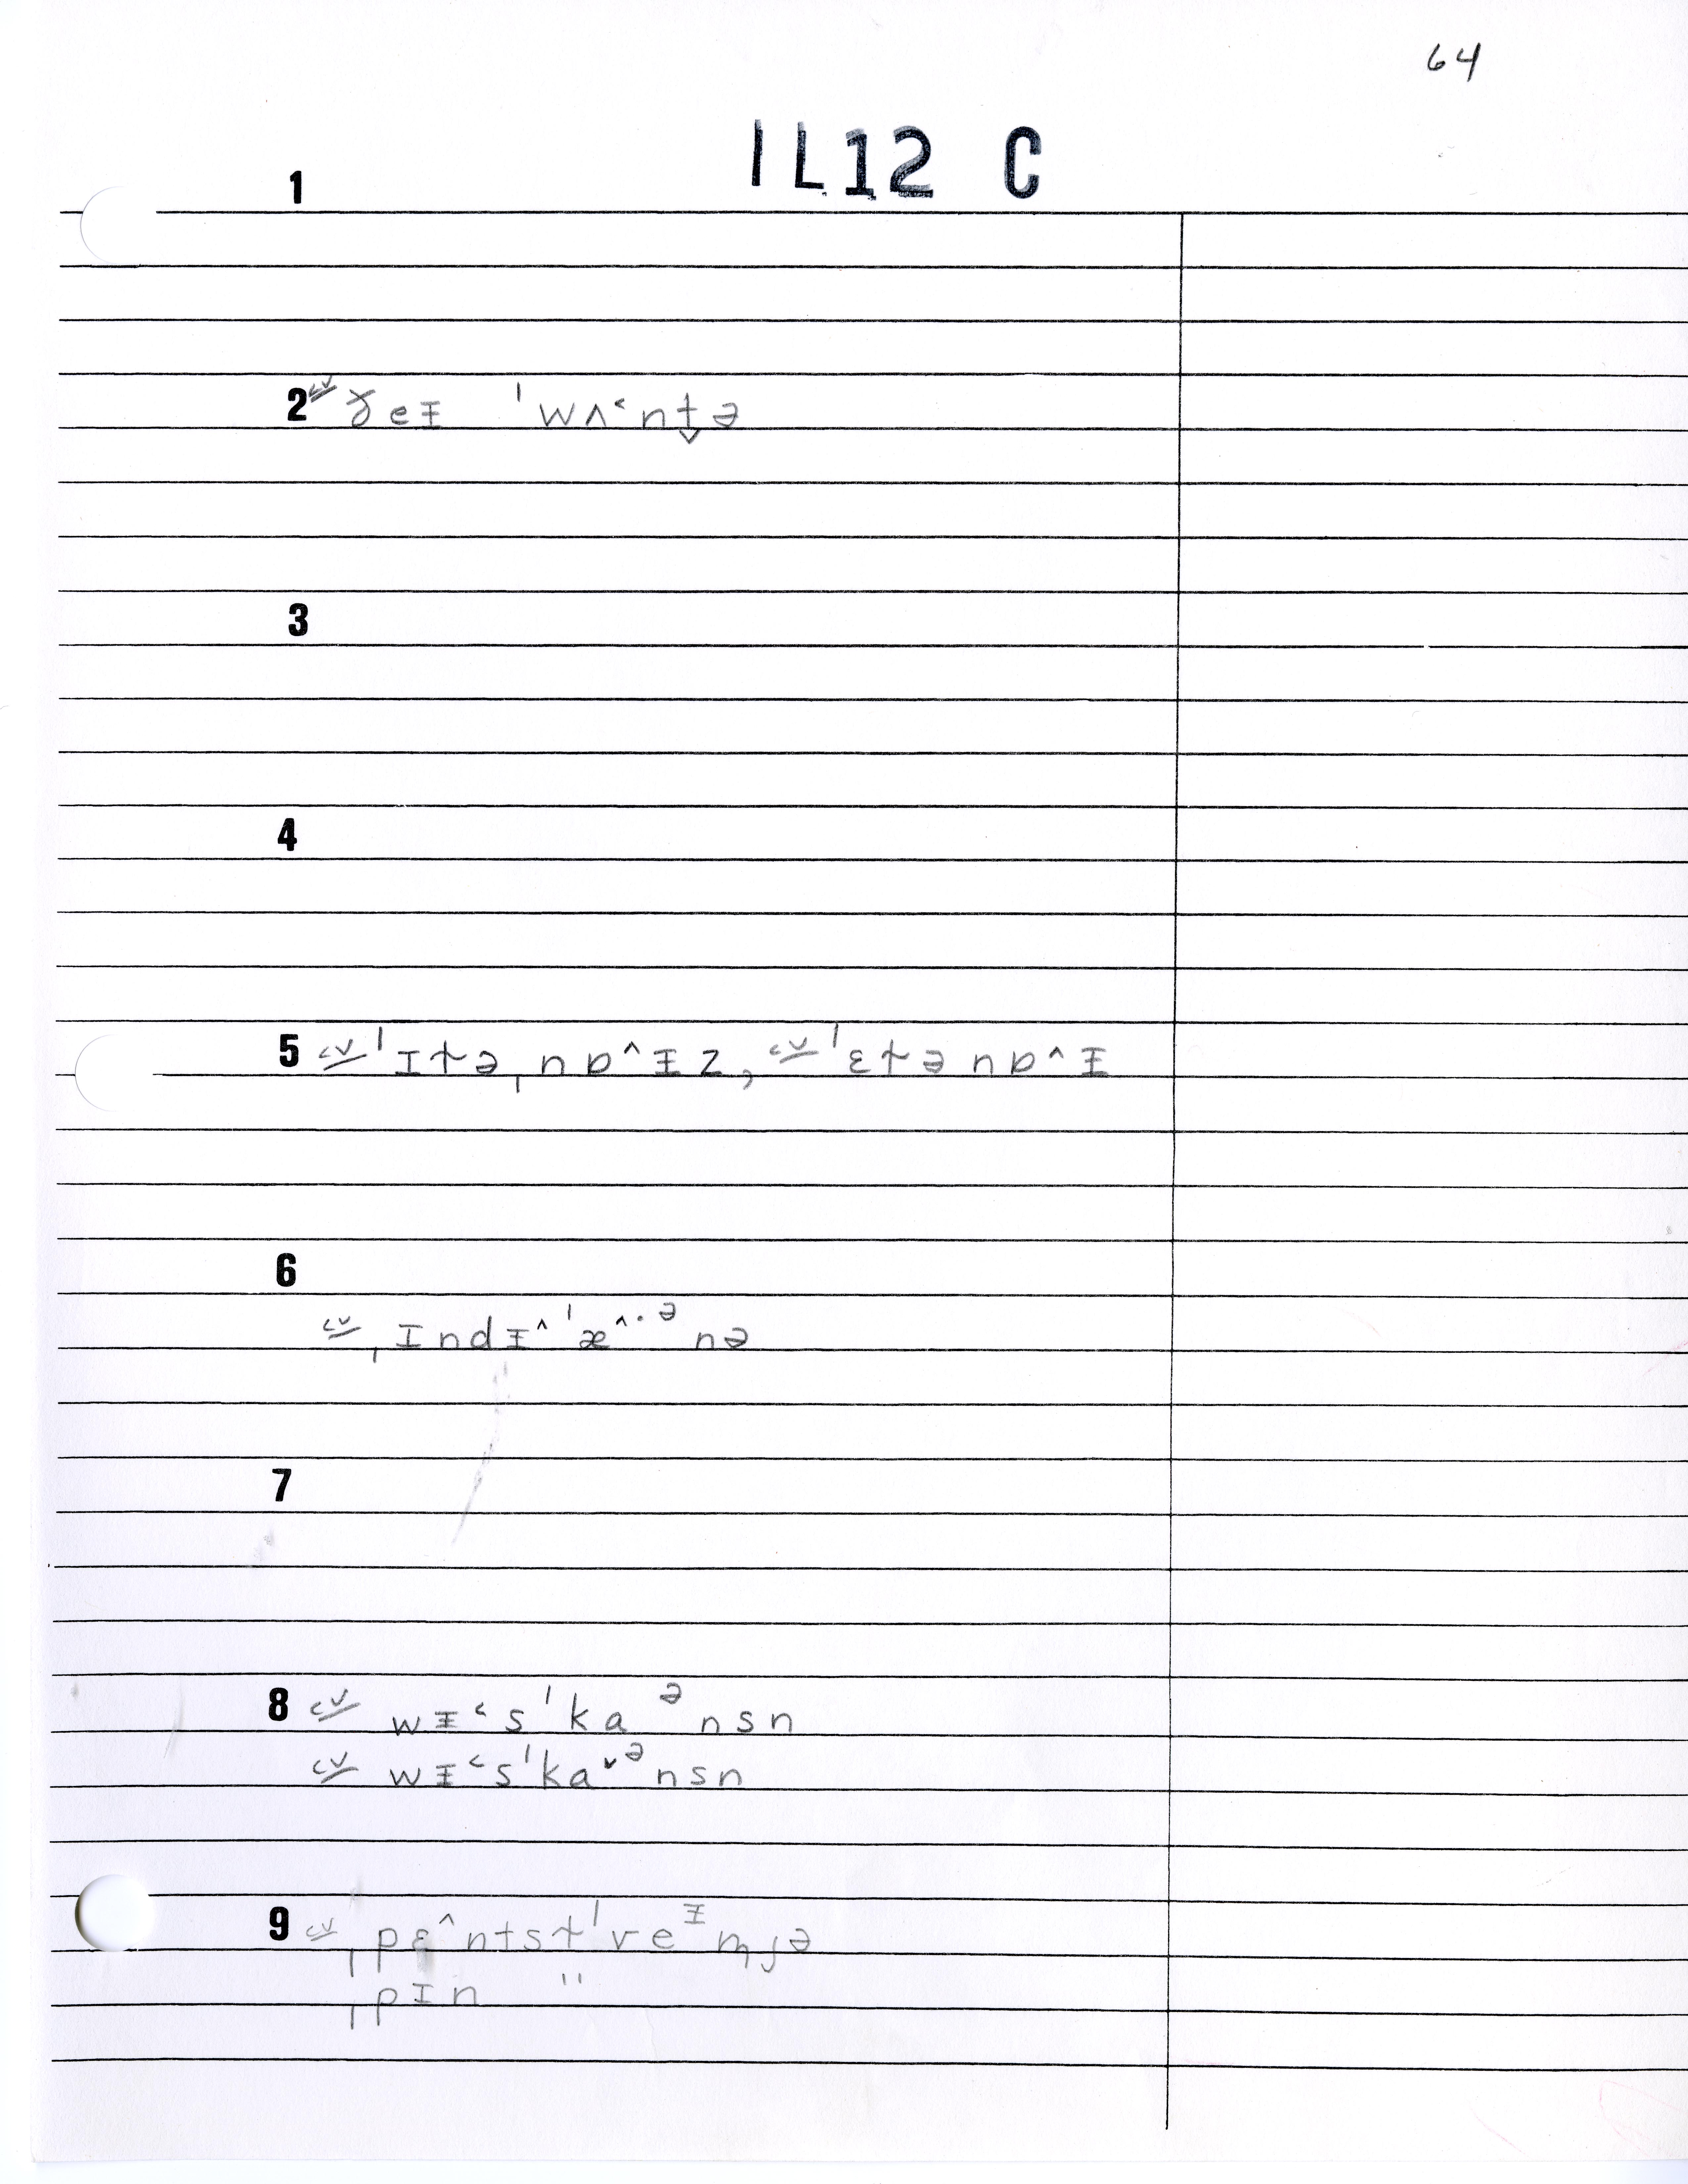 64
IL12 C
1
2 cv ɤeᵻ ˈwʌ˂nt̬ə
3
4
5 cv ˈɪtə ˌnɒ^ᵻz, cv ˈɛtənɒ^ᵻ
6
cv ˌɪndᵻ^ˈæ^·ᵊnə
7
8 cv wᵻ˂sˈkaᵊnsn
cv wᵻ˂sˈka˅ᵊnsn
9 cv ˌpɛ^ntstˈveᵻmjə
ˌpɪn "